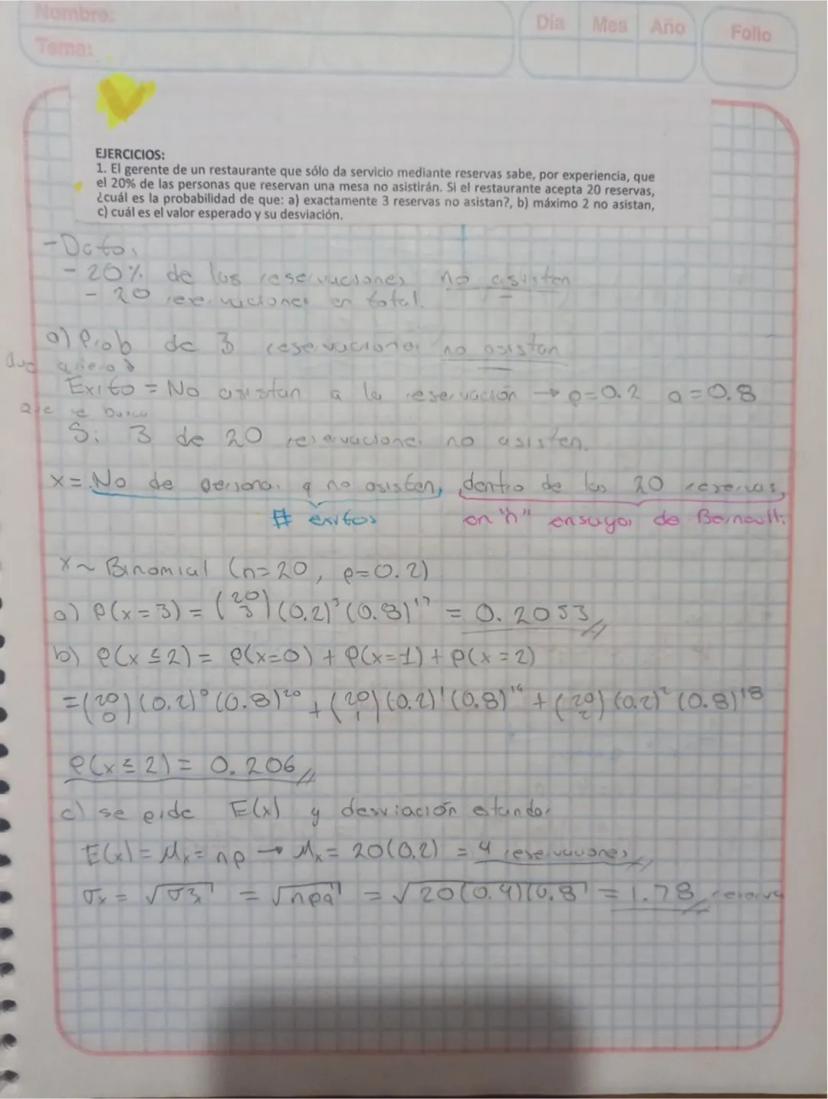 Nombre:
Tema:
Día Mes Año Folio
EJERCICIOS:
1. El gerente de un restaurante que sólo da servicio mediante reservas sabe, por experiencia, que
el 20% de las personas que reservan una mesa no asistirán. Si el restaurante acepta 20 reservas,
¿cuál es la probabilidad de que: a) exactamente 3 reservas no asistan?, b) máximo 2 no asistan,
c) cuál es el valor esperado y su desviación.
- Datos
- 20% de las reservaciones no asisten
- 20 reservaciones en total.
a) Prob de 3 reservaciones no asistan
Exito = No asistan a la reservación → p=0.2 q=0.8
Si 3 de 20 reservaciones no asisten.
x = No de personas q no asisten, dentro de las 20 reservas,
# exitos en "n" ensayos de Bernoulli
x ~ Binomial (n=20, p=0.2)
a) P(x=3) = (20 3) (0.2)³ (0.8)¹⁷ = 0.2053
b) P(x ≤ 2) = P(x=0) + P(x=1) + P(x=2)
= (20 0) (0.2)⁰ (0.8)²⁰ + (20 1) (0.2)¹ (0.8)¹⁹ + (20 2) (0.2)² (0.8)¹⁸
P(x ≤ 2) = 0.206
c) se pide E(x) y desviación estandar
E(x) = Mx = np → Mx = 20(0.2) = 4 reservaciones
σx = √ = √npq = √20(0.4)(0.8 = 1.78